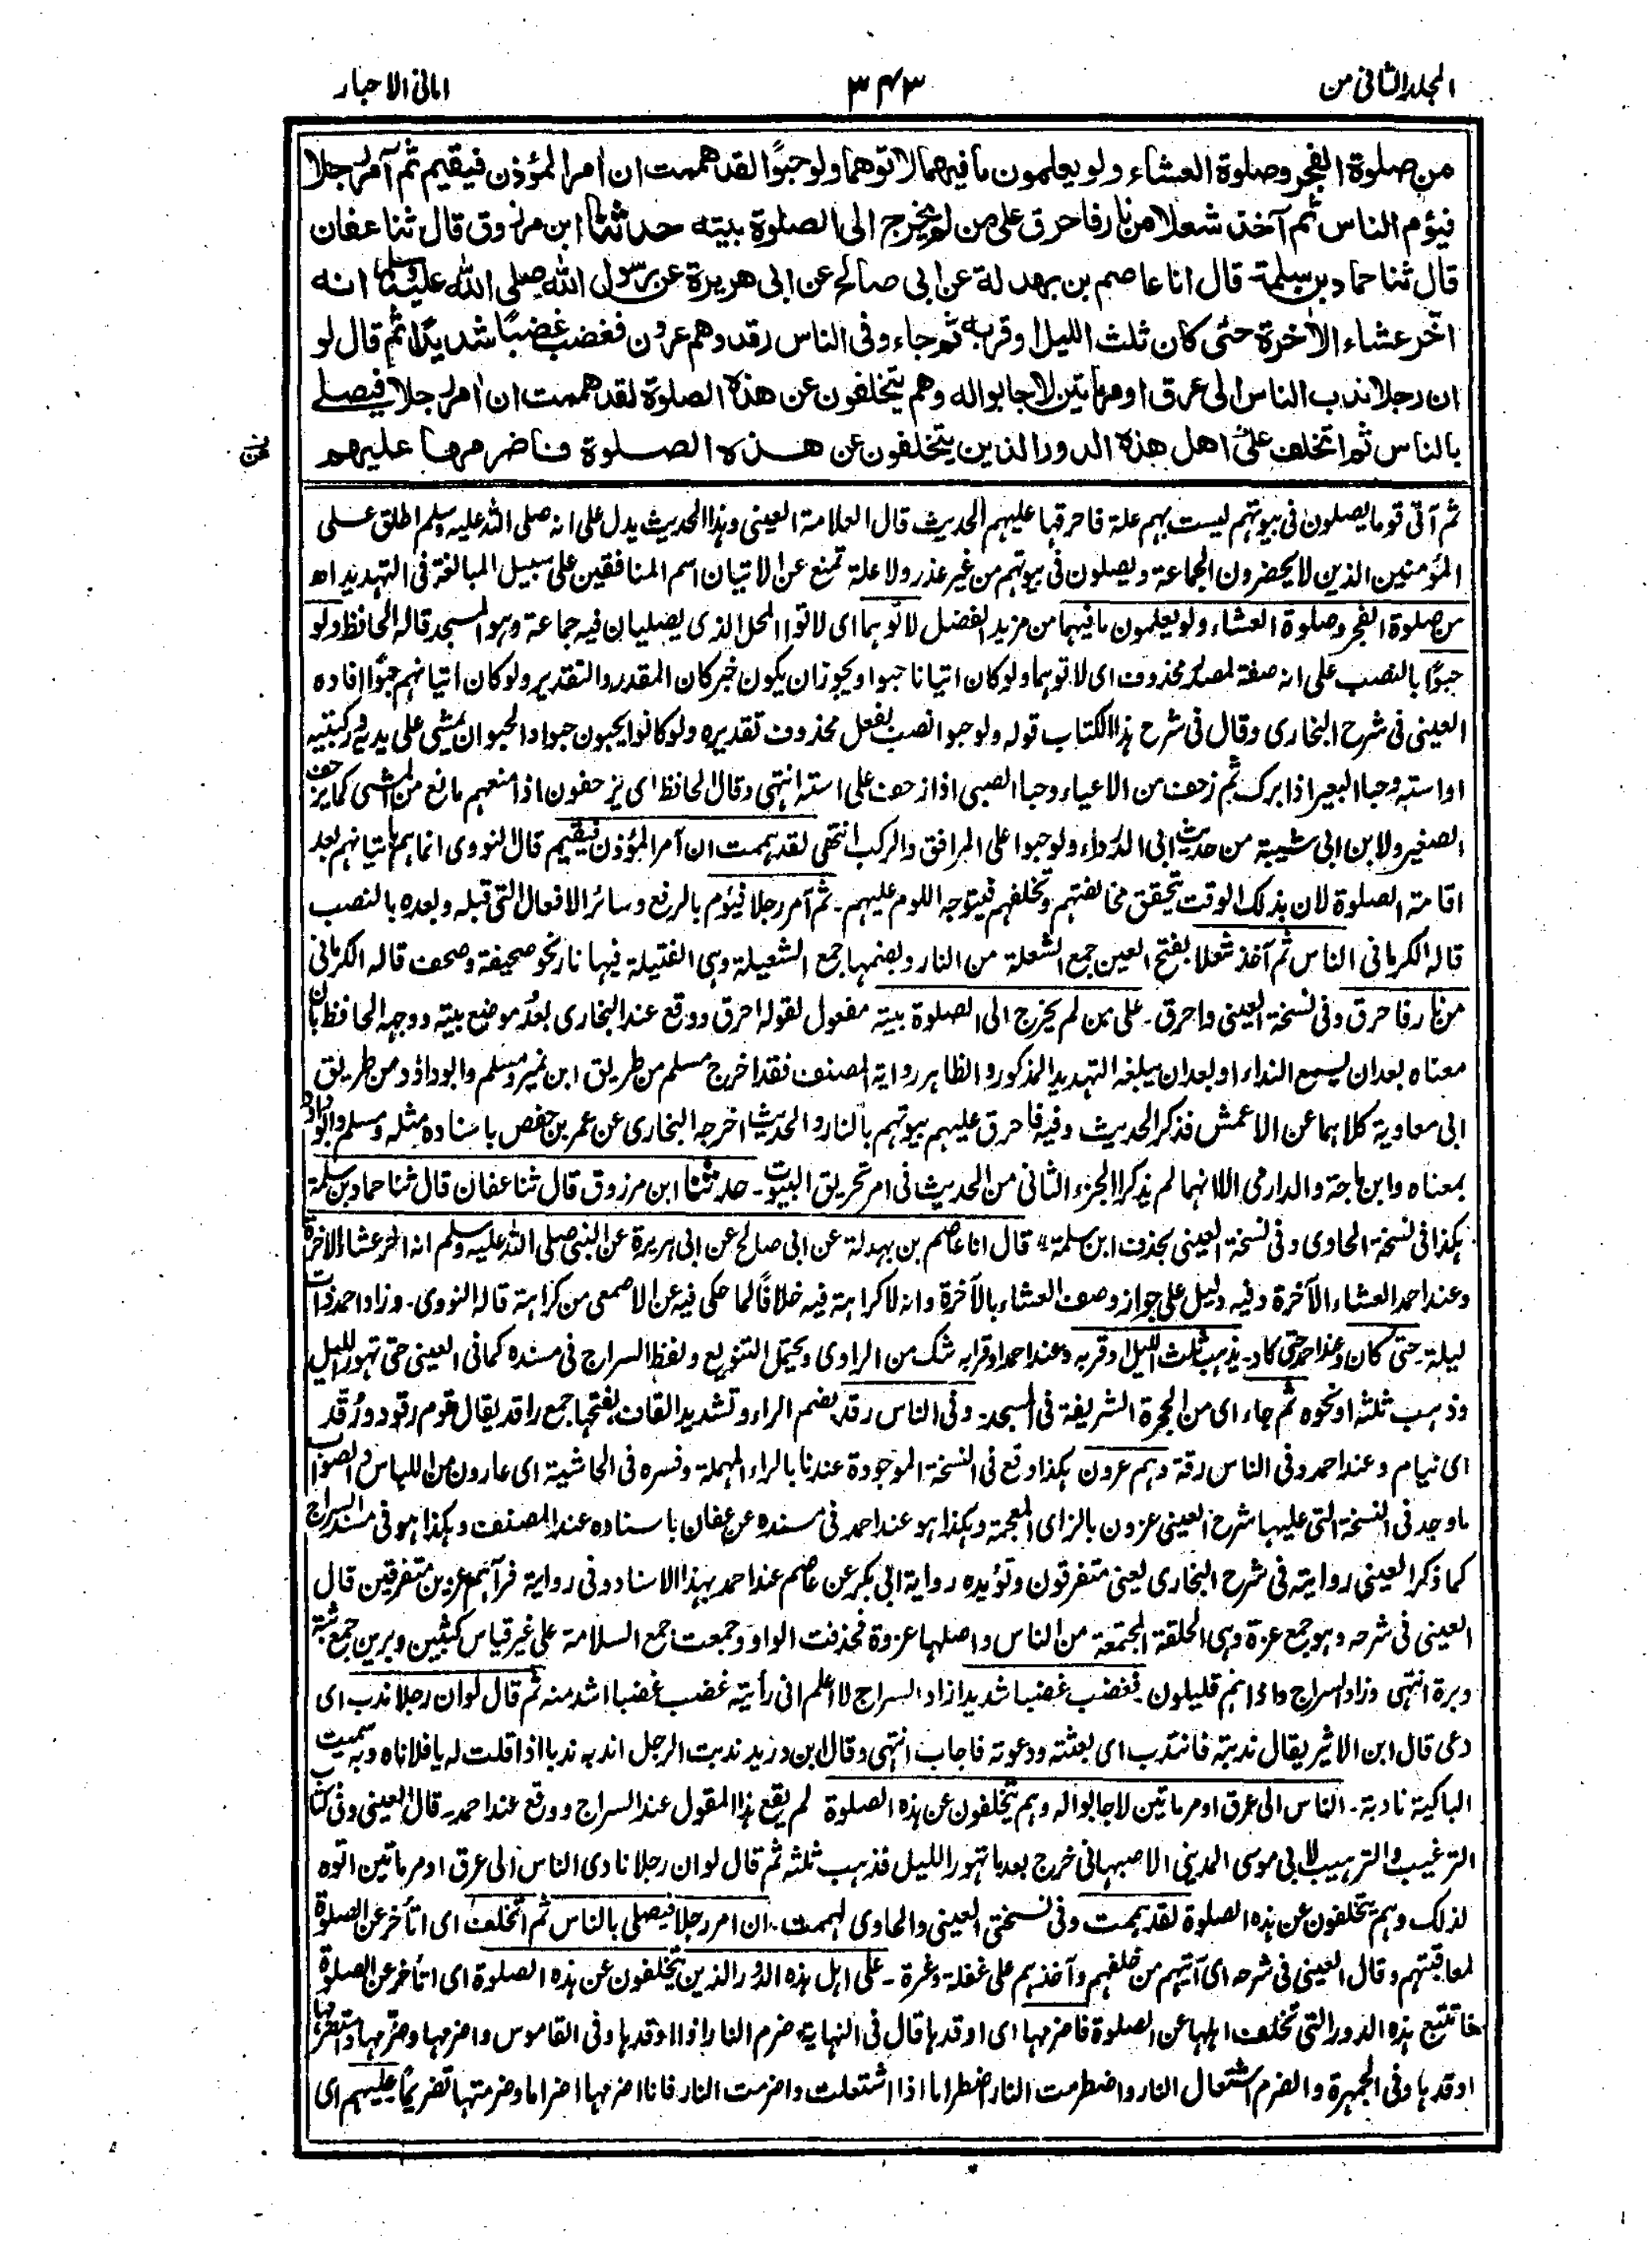 المجلد الثانى من
٣٤٣
امانى الاحبار
من صلوة الفجر وصلوة العشاء ولو يعلمون ما فيهما لاتوهما ولو حبوًا لقد هممت ان امر المؤذن فيقيم ثم آمر رجلا
فيؤم الناس ثم آخذ شعلا من نار فاحرق على من لم يخرج الى الصلوة بيته حدثنا ابن مرزوق قال ثنا عفان
قال ثنا حماد بن سلمة قال انا عاصم بن بهدلة عن ابى صالح عن ابى هريرة عن رسول الله صلى الله عليه وسلم انه
اخّر عشاء الاٰخرة حتى كان ثلث الليل وقربه ثم جاء وفى الناس رقد وهم عرون فغضب غضبًا شديدًا ثم قال لو
ان رجلا ندب الناس الى عرق او مرماتين لاجابوا له وهم يتخلفون عن هذه الصلوة لقد هممت ان اٰمر رجلا فيصلے
بالناس ثم اتخلف على اهل هذه الدور الذين يتخلفون عن هذه الصلوة فاضرمها عليهم
ثم آتى قوما يصلون فى بيوتهم ليست بهم علة فاحرقها عليهم الحديث قال العلامة العينى وهذا الحديث يدل على انه صلى الله عليه وسلم اطلق على
المؤمنين الذين لا يحضرون الجماعة ويصلون فى بيوتهم من غير عذر ولا علة تمنع عن الاتيان اسم المنافقين على سبيل المبالغة فى التهديد اھ
من صلوة الفجر وصلوة العشاء ولو يعلمون ما فيهما من مزيد الفضل لاتوهما اى لاتوا المحل الذى يصليان فيه جماعة وهو المسجد قاله الحافظ ولو
حبوًا بالنصب على انه صفة لمصدر محذوف اى لاتوهما ولو كان اتيانا حبوا ويجوز ان يكون خبر كان المقدر والتقدير ولو كان اتيانهم حبوًا افاده
العينى فى شرح البخارى وقال فى شرح هذا الكتاب قوله ولو حبوا نصب بفعل محذوف تقديره ولو كانوا يحبون حبوا والحبو ان يمشى على يديه وركبتيه
او استه وحبا البعير اذا برك ثم زحف من الاعياء وحبا الصبى اذا زحف على استه انتهى وقال الحافظ اى يزحفون اذا منعهم مانع من المشى كما يزحف
الصغير ولابن ابى شيبة من حديث ابى الدرداء ولو حبوا على المرافق والركب انتهى لقد هممت ان آمر المؤذن فيقيم قال النووى انما هم باتيانهم بعد
اقامة الصلوة لان بذلك الوقت تتحقق مخالفتهم وتخلفهم فيتوجه اللوم عليهم۔ ثم آمر رجلا فيؤم بالرفع وسائر الافعال التى قبله وبعده بالنصب
قاله الكرمانى الناس ثم آخذ شعلا بفتح العين جمع الشعلة من النار وبضمها جمع الشعيلة وهى الفتيلة فيها نار نحو صحيفة وصحف قاله الكرمانى
من نار فاحرق وفى نسخة العينى واحرق۔ على من لم يخرج الى الصلوة بيته مفعول لقوله احرق ووقع عند البخارى بعدُ موضع بيته ووجهه الحافظ بان
معناه بعد ان يسمع النداء او بعد ان يبلغه التهديد المذكور والظاهر رواية المصنف فقد اخرج مسلم من طريق ابن نمير ومسلم وابو داؤد من طريق
ابى معاوية كلاهما عن الاعمش فذكر الحديث وفيه فاحرق عليهم بيوتهم بالنار والحديث اخرجه البخارى عن عمر بن حفص باسناده مثله ومسلم وابو داؤد
بمعناه وابن ماجة والدارمى الا انهما لم يذكرا الجزء الثانى من الحديث فى امر تحريق البيوت۔ حدثنا ابن مرزوق قال ثنا عفان قال ثنا حماد بن سلمة
هكذا فى نسخة الحاوى وفى نسخة العينى بحذف ابن سلمة قال انا عاصم بن بهدلة عن ابى صالح عن ابى هريرة عن النبى صلى الله عليه وسلم انه اخر عشاء الاخرة
وعند احمد العشاء الآخرة وفيه دليل على جواز وصف العشاء بالآخرة وانه لا كراهة فيه خلافًا لما حكى فيه عن الاصمعى من كراهة قاله النووى۔ وزاد احمد ذات
ليلة۔ حتى كان وعند احمد حتى كاد۔ يذهب ثلث الليل او قربه وعند احمد او قرابه شك من الراوى ويحتمل التنويع ولفظ السراج فى مسنده كما فى العينى حتى تهور الليل
وذهب ثلثه او نحوه ثم جاء اى من الحجرة الشريفة فى المسجد۔ وفى الناس رقد بضم الراء وتشديد القاف بفتحها جمع راقد يقال قوم رقود ورُقد
اى نيام وعند احمد وفى الناس رقة وهم عرون هكذا وقع فى النسخة الموجودة عندنا بالراء المهملة وفسره فى الحاشية اى عارون من اللباس والصواب
ما وجد فى النسخة التى عليها شرح العينى عزون بالزاى المعجمة وهكذا هو عند احمد فى مسنده عن عفان باسناده عند المصنف وهكذا هو فى مسند السراج
كما ذكر العينى روايته فى شرح البخارى يعنى متفرقون وتؤيده رواية ابى بكر عن عاصم عند احمد بهذا الاسناد وفى رواية فرآهم عزين متفرقين قال
العينى فى شرحه وهو جمع عزة وهى الحلقة المجتمعة من الناس واصلها عزوة فحذفت الواو وجمعت جمع السلامة على غير قياس كثبين وبرين جمع ثبة
وبرة انتهى وزاد السراج واذا هم قليلون۔ فغضب غضبا شديدا زاد السراج لا اعلم انى رأيته غضب غضبا اشد منه ثم قال لو ان رجلا ندب اى
دعى قال ابن الاثير يقال ندبته فانتدب اى بعثته ودعوته فاجاب انتهى وقال ابن دريد ندبت الرجل اندبه ندبا اذا قلت له يا فلاناه وبه سميت
الباكية نادبة۔ الناس الى عرق او مرماتين لاجابوا له وهم يتخلفون عن هذه الصلوة لم يقع هذا المقول عند السراج ووقع عند احمد۔ قال العينى وفى كتاب
الترغيب والترهيب لابى موسى المدينى الاصبهانى خرج بعد ما تهور الليل فذهب ثلثه ثم قال لو ان رجلا نادى الناس الى عرق او مرماتين اتوه
لذلك وهم يتخلفون عن هذه الصلوة لقد هممت وفى نسختى العينى والحاوى لهممت۔ ان امر رجلا فيصلى بالناس ثم اتخلف اى اتأخر عن الصلوة
لمعاقبتهم وقال العينى فى شرحه اى آتيهم من خلفهم وآخذهم على غفلة وغرة۔ على اهل هذه الدور الذين يتخلفون عن هذه الصلوة اى اتأخر عن الصلوة
فاتتبع هذه الدور التى تخلف اهلها عن الصلوة فاضرمها اى اوقدها قال فى النهاية ضرم النار اذا اوقدها وفى القاموس واضرمها وضرمها واستضرمها
اوقدها وفى الجمهرة والضرم اشتعال النار واضطرمت النار اضطراما اذا اشتعلت واضرمت النار فانا اضرمها اضراما وضرمتها تضريمًا عليهم اى